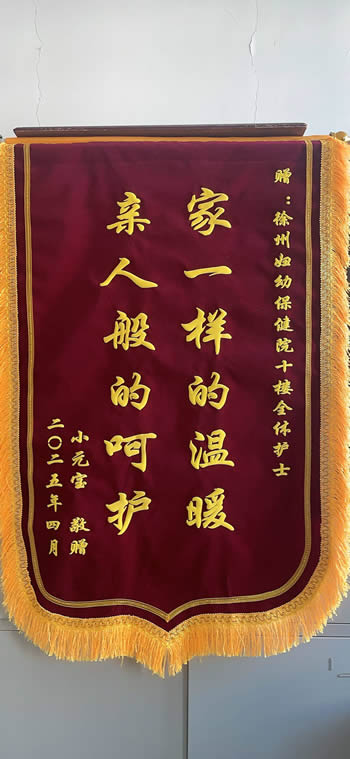 赠：徐州妇幼保健院十楼全体护士
家一样的温暖
亲人般的呵护
小元宝 敬赠
二〇二五年四月